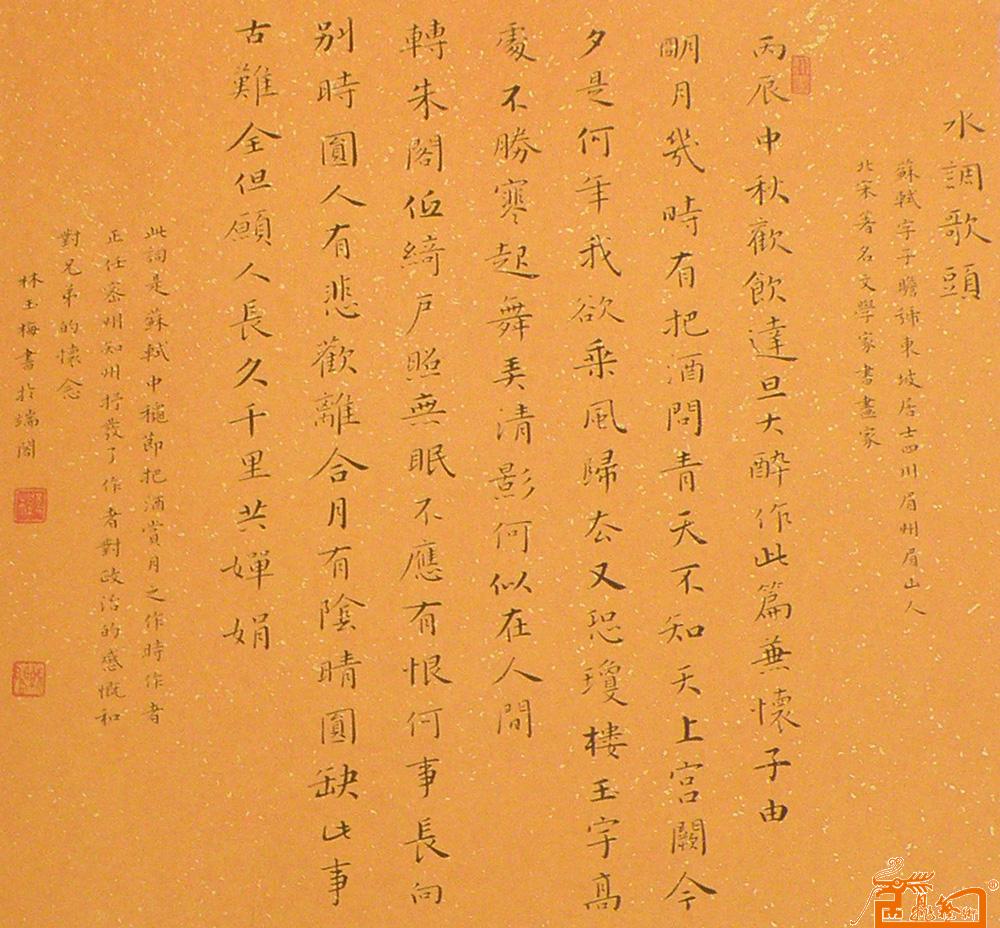 水調歌頭
蘇軾字子瞻號東坡居士四川眉州眉山人
北宋著名文學家書畫家
丙辰中秋歡飲達旦大醉作此篇兼懷子由
明月幾時有把酒問青天不知天上宮闕今
夕是何年我欲乘風歸去又恐瓊樓玉宇高
處不勝寒起舞弄清影何似在人間
轉朱閣低綺戶照無眠不應有恨何事長向
別時圓人有悲歡離合月有陰晴圓缺此事
古難全但願人長久千里共嬋娟
此詞是蘇軾中穐節把酒賞月之作時作者
正任密州知州抒發了作者對政治的感慨和
對兄弟的懷念
林玉梅書於端閣